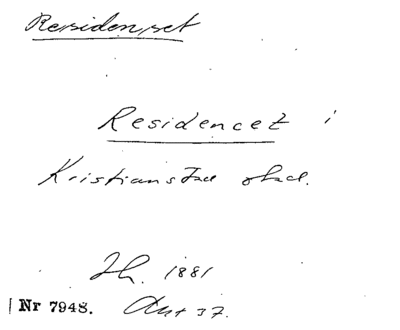 Residenset
Residencet i
Kristianstad stad.
Th. 1881
Nr 7948. Aut 37.